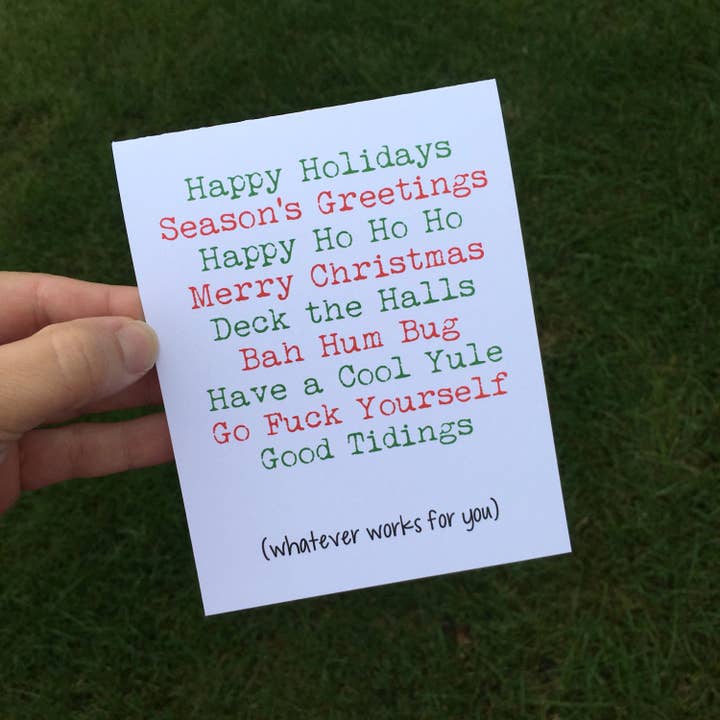 Happy Holidays
Season's Greetings
Happy Ho Ho Ho
Merry Christmas
Deck the Halls
Bah Hum Bug
Have a Cool Yule
Go Fuck Yourself
Good Tidings
(whatever works for you)